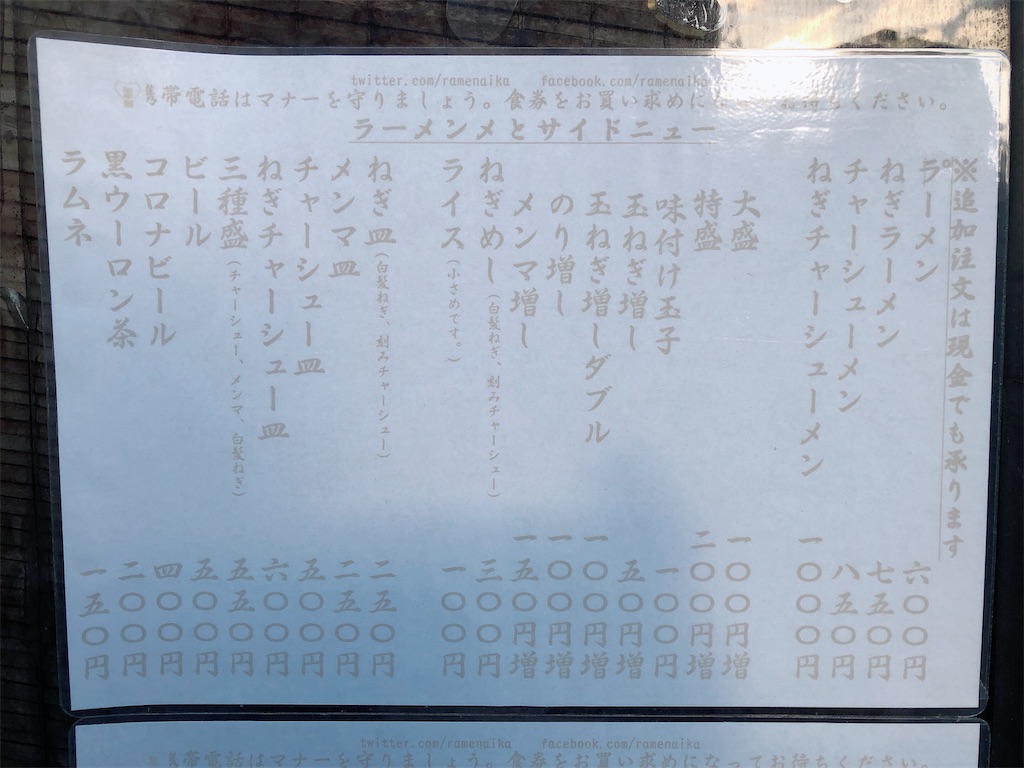 twitter.com/ramenaika facebook.com/ramenaika
携帯電話はマナーを守りましょう。食券をお買い求めに お待ちください。
ラーメンメとサイドニュー
※追加注文は現金でも承ります。
ラーメン 六〇〇円
ねぎラーメン 七五〇円
チャーシューメン 八五〇円
ねぎチャーシューメン 一〇〇〇円
大盛 一〇〇円増
特盛 二〇〇円増
味付け玉子 一〇〇円
玉ねぎ増し 五〇円増
玉ねぎ増しダブル 一〇〇円増
のり増し 一〇〇円増
メンマ増し 一五〇円増
ねぎめし(白髪ねぎ、刻みチャーシュー) 三〇〇円
ライス(小さめです。) 一〇〇円
ねぎ皿(白髪ねぎ、刻みチャーシュー) 二五〇円
メンマ皿 二五〇円
チャーシュー皿 五〇〇円
ねぎチャーシュー皿 六〇〇円
三種盛(チャーシュー、メンマ、白髪ねぎ) 五五〇円
ビール 五〇〇円
コロナビール 四〇〇円
黒ウーロン茶 二〇〇円
ラムネ 一五〇円
twitter.com/ramenaika facebook.com/ramenaika
携帯電話はマナーを守りましょう。食券をお買い求めになってお待ちください。